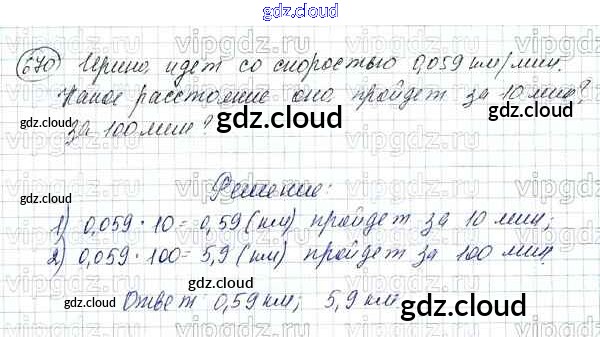 gdz.cloud
670 Ирина идет со скоростью 0,059 км/мин.
Какое расстояние она пройдет за 10 мин?
за 100 мин?
gdz.cloud
gdz.cloud
gdz.cloud
Решение:
1) 0,059 · 10 = 0,59 (км) пройдет за 10 мин;
gdz.cloud
gdz.cloud
2) 0,059 · 100 = 5,9 (км) пройдет за 100 мин.
gdz.cloud
Ответ 0,59 км; 5,9 км
gdz.cloud